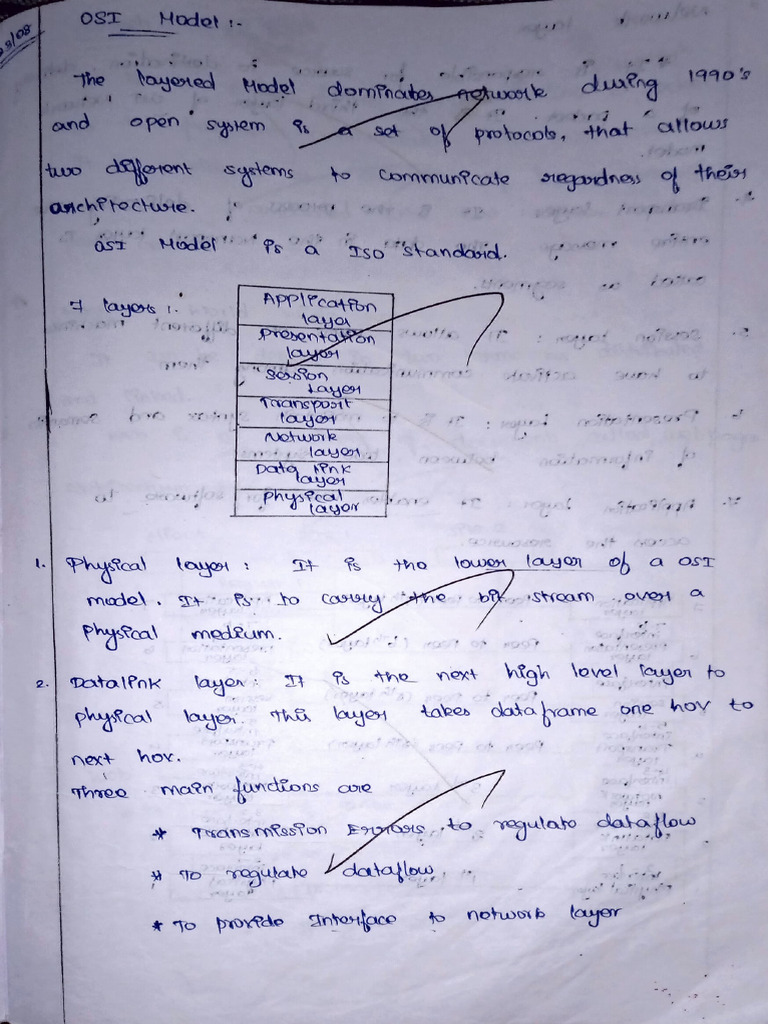 OSI Model :-
The layered Model dominates network during 1990's
and open system is a set of protocols, that allows
two different systems to communicate regardness of their
architecture.
OSI Model is a ISO standard.
7 layers :-
Application layer
Presentation layer
Session layer
Transport layer
Network layer
Data link layer
Physical layer
1. Physical layer : It is the lower layer of a OSI
model. It is to carry the bit stream over a
physical medium.
2. Datalink layer : It is the next high level layer to
physical layer. This layer takes dataframe one hov to
next hov.
Three main functions are
* Transmission Errors to regulate dataflow
* To regulate dataflow
* To provide Interface to network layer